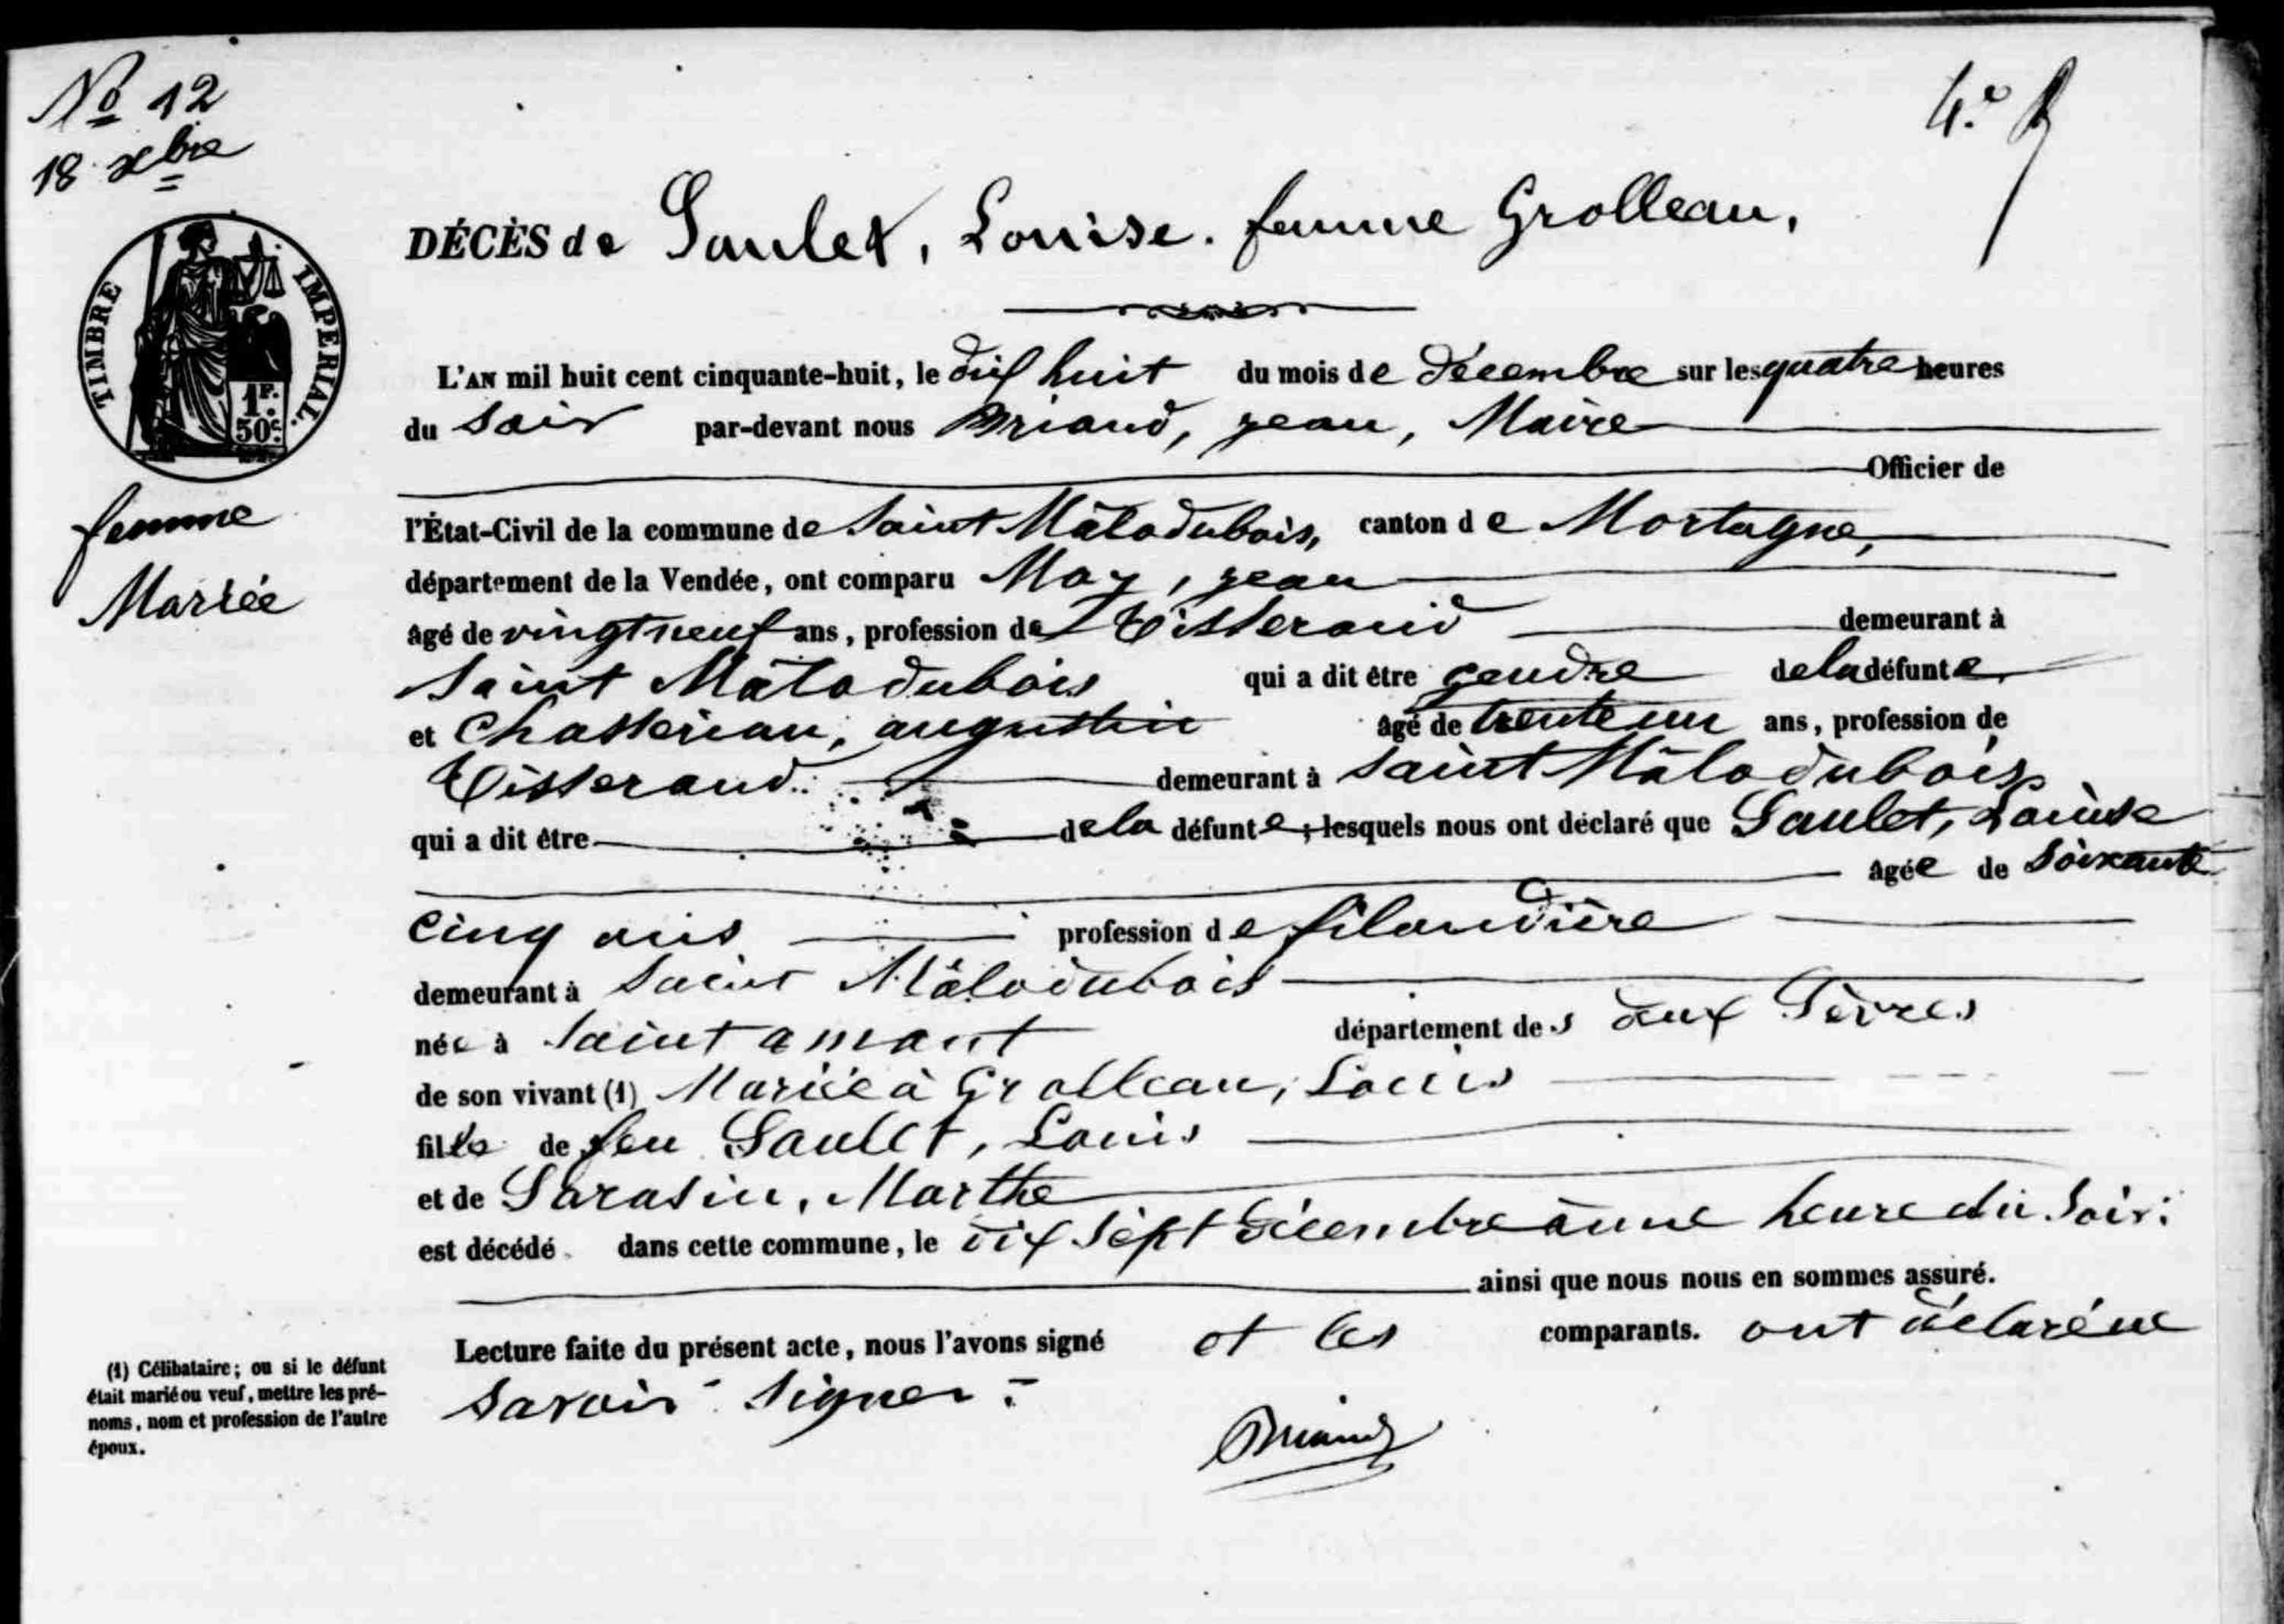 No 12
4.e
18 xbre
DÉCÈS de Saulet, Louise. femme Grolleau,
TIMBRE IMPERIAL
1F.
50c.
L'AN mil huit cent cinquante-huit, le dix huit du mois de décembre sur les quatre heures
du soir par-devant nous Briand, jean, Maire
Officier de
l'État-Civil de la commune de Saint Mâlodubois, canton de Mortagne,
femme
département de la Vendée, ont comparu May, jean
Mariée
âgé de vingt neuf ans, profession de Tisserand demeurant à
Saint Mâlodubois qui a dit être gendre de la défunte
et Chassériau, augustin âgé de trente un ans, profession de
Tisserand demeurant à Saint Mâlodubois
qui a dit être de la défunte, lesquels nous ont déclaré que Saulet, Louise
âgée de soixante
cinq ans profession de filandière
demeurant à Saint Mâlodubois
née à Saint amant département des deux Sèvres
de son vivant (1) Mariée à Grolleau, Louis
fille de feu Saulet, Louis
et de Sarasin, Marthe
est décédé dans cette commune, le dix sept décembre à une heure du soir.
ainsi que nous nous en sommes assuré.
Lecture faite du présent acte, nous l'avons signé et les comparants. ont déclaré ne
savoir signer.
Briand
(1) Célibataire; ou si le défunt
était marié ou veuf, mettre les pré-
noms, nom et profession de l'autre
époux.